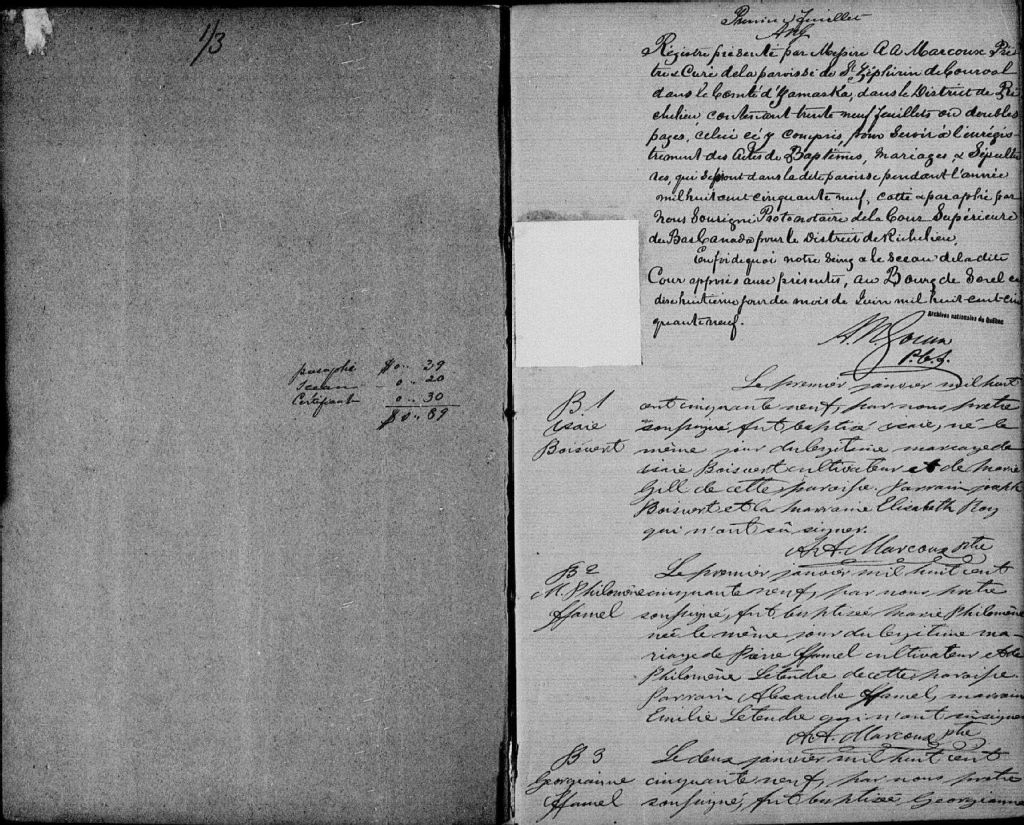 1/3
paraphe $0.. 39
Sceau 0.. 20
Certificat 0.. 30
$0.. 89
Premier feuillet
Régistre présenté par Messire A A Marcoux Prê
tre & Curé de la paroisse de St Zéphirin de Courval
dans le Comté d'Yamaska, dans le District de Ri
chelieu contenant trente neuf feuillets ou doubles
pages, celui ci y compris, pour servir à l'enrégis
trement des Actes de Baptêmes, Mariages & Sépultu
res, qui se feront dans la dite paroisse pendant l'année
mil huit cent cinquante neuf, cotté & paraphé par
Nous Soussigné Protonotaire de la Cour Supérieure
du Bas Canada pour le District de Richelieu.
En foi de quoi notre Seing & le Sceau de la dite
Cour apposés aux présentes, au Bourg de Sorel ce
dix huitième jour du mois de Juin mil huit-cent-cin
quante neuf.
Archives nationales du Québec
P.C.S.
Le premier janvier mil huit
B 1 cent cinquante neuf, par nous prêtre
Isaïe soussigné, fut baptisé isaïe, né le
Boisvert même jour du légitime mariage de
isaïe Boisvert cultivateur et de marie
Gill de cette paroisse. Parrain joseph
Boisvert et la marraine Elisabeth Roy
qui n'ont sû signer.
A. A. Marcoux ptre
B 2 Le premier janvier mil huit cent
M. Philomène cinquante neuf, par nous prêtre
Hamel soussigné, fut baptisée marie Philomène
née le même jour du légitime ma-
riage de Pierre Hamel cultivateur & de
Philomène Letendre de cette paroisse.
Parrain Alexandre Hamel, marraine
Emilie Letendre qui n'ont sû signer
A. A. Marcoux ptre
B 3 Le deux janvier mil huit cent
Georgianne cinquante neuf, par nous prêtre
Hamel soussigné, fut baptisée Georgianne